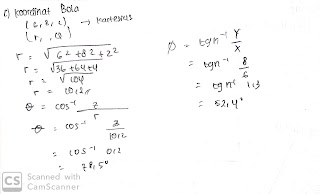 c) Koordinat Bola
(6, 8, 2) → kartesius
(r, , Q)
r = √6² + 8² + 2²
r = √36 + 64 + 4
r = √104
r = 10,2
θ = cos⁻¹ z/r
θ = cos⁻¹ 2/10,2
= cos⁻¹ 0,2
= 78,5°
= tgn⁻¹ Y/X
= tgn⁻¹ 8/6
= tgn⁻¹ 1,3
= 52,4°
CS Scanned with
CamScanner